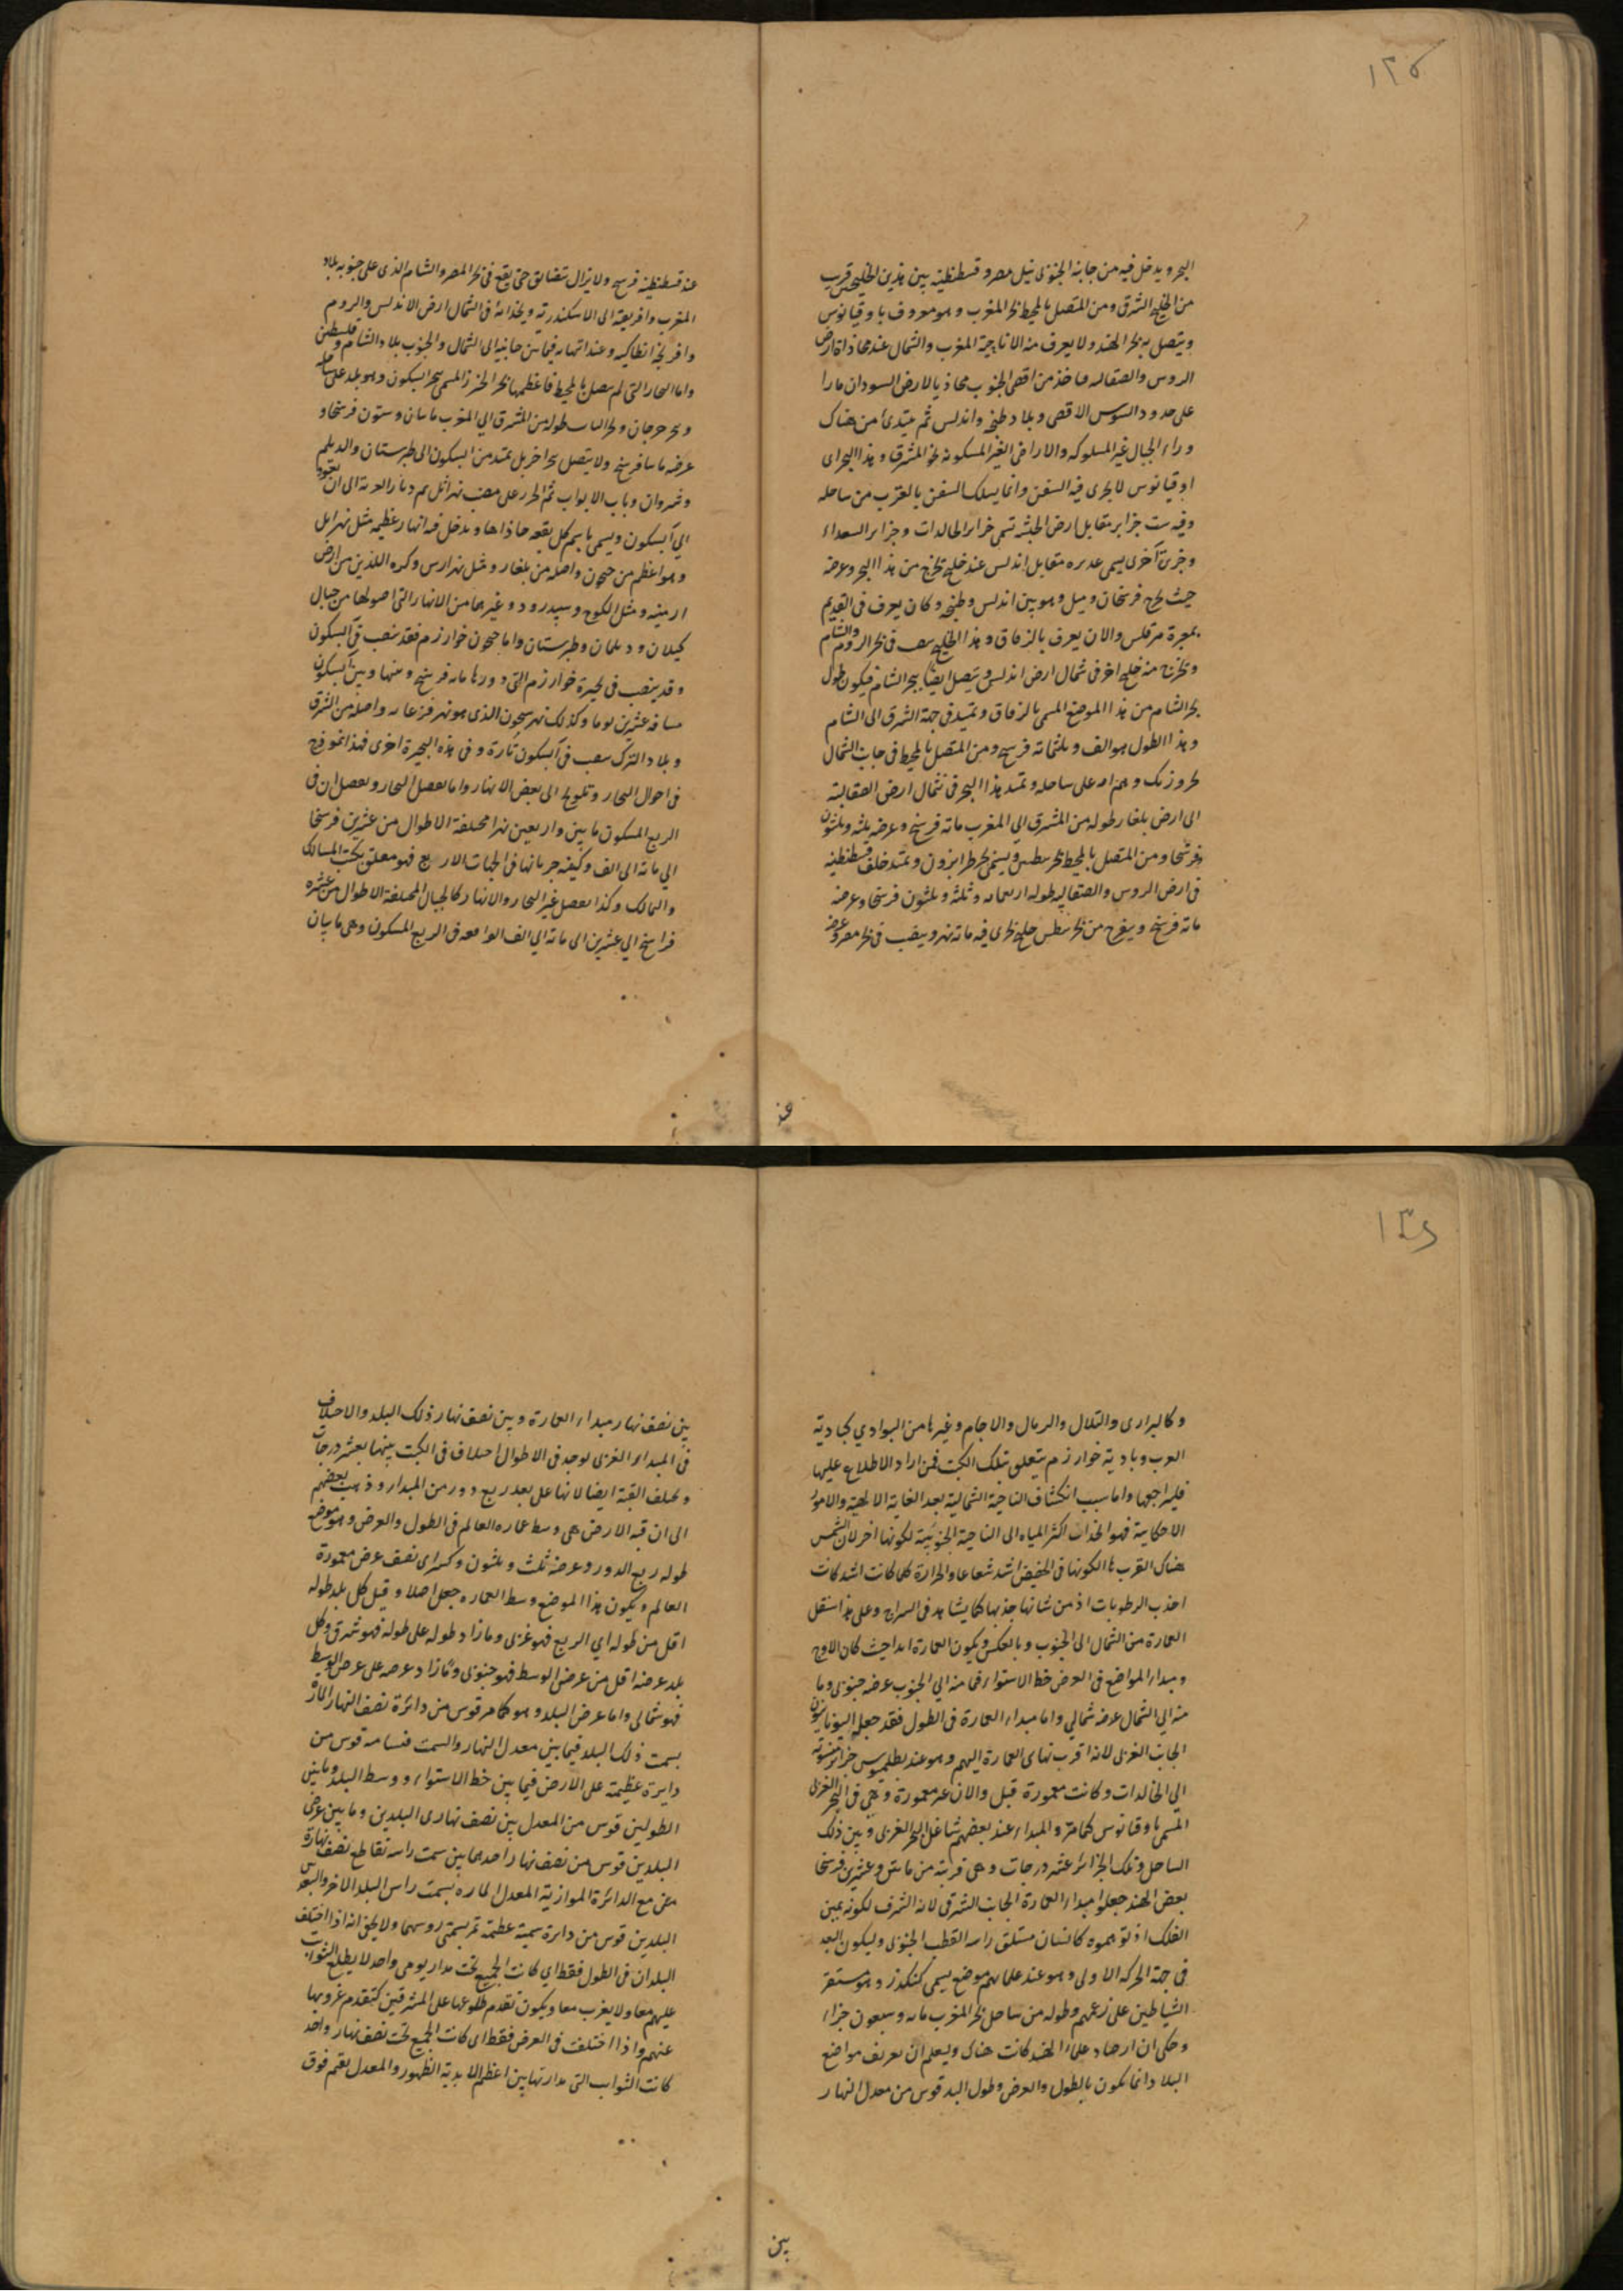 ١٢٥
البحر ويدخل فيه من جانبه الجنوبى نيل مصر و قسطنطنية بين هذين الخليجين قريب
من الخليج الشرق ومن المتصل بالمحيط بحر المغرب وهو معروف باوقيانوس
ويتصل به بحر الهند ولا يعرف منه الا ناحية المغرب والشمال عند محاذاة ارض
الروس والصقالبه فياخذ من اقصى الجنوب محاذيا لارض السودان مارا
على حدود السوس الاقصى وبلاد طنجه واندلس ثم يبتدئ من هناك
وراء الجبال غير المسلوكه والاراضى الغير المسكونه نحو المشرق وهذا البحر اى
اوقيانوس لا يجرى فيه السفن وانما يسلك السفن بالقرب من ساحله
وفيه ست جزاير مقابل ارض الحبشه تسمى جزاير الخالدات وجزاير السعداء
وجزيرة اخرى يسمى مقابل اندلس عند خليج يخرج من هذا البحر وعرضه
حيث يخرج فرسخان وميل وهو بين اندلس وطنجه وكان يعرف فى القديم
والان يعرف بالزقاق وهذا الخليج يصب فى بحر الروم والشام
ويخرج منه خليج اخر فى شمال ارض اندلس ويتصل ايضا ببحر الشام فيكون طول
بحر الشام من هذا الموضع المسمى بالزقاق ويمتد فى جهة الشرق الى الشام
وهذا الطول هو الف وثلثمائة فرسخ ومن المتصل بالمحيط فى جانب الشمال
بحر ورنك على ساحله ويمتد هذا البحر فى شمال ارض الصقالبة
الى ارض بلغار طوله من المشرق الى المغرب مائة فرسخ وعرضه ثلثه وثلثون
فرسخا ومن المتصل بالمحيط بحر بنطس ويسمى بحر طرابزون ويمتد خلف قسطنطنيه
فى ارض الروس والصقالبه طوله اربعمايه وثلثه وثلثون فرسخا وعرضه
مائة فرسخ ويخرج من بحر بنطس خليج يجرى فيه مائة نهر ويصب فى بحر مصر وعرضه
عند
عند قسطنطنية فرسخ ولا يزال تتضايق حتى يقع فى بحر المصر والشام الذى على جنوبه بلاد
المغرب وافريقيه الى الاسكندرية ويحاذيه فى الشمال ارض الاندلس والروم
وافرنجه انطاكيه وعند انتهائه فيما بين جانبيه الى الشمال والجنوب بلاد الشام وفلسطين
واما البحار التى لم يتصل بالمحيط فاعظمها بحر الخزر المسمى ببحر ابسكون وهو بلد على ساحله
وبحر جرجان وبحر الباب طوله من المشرق الى المغرب مايتان وستون فرسخا و
عرضه مايتا فرسخ ولا يتصل ببحر اخر بل يمتد من ابسكون الى طبرستان والديلم
وشروان وباب الابواب ثم الخزر على مصب نهر اتل ثم ديار الغزية الى ان يعود
الى ابسكون ويسمى باسم كل بقعه حاذاها ويدخل فيه انهار عظيمه مثل نهر اتل
وهو اعظم من جيحون واصله من بلغار ومثل نهر ارس وكره اللذين من ارض
ارمينيه ومثل الكوج وسپيدرود وغيرهما من الانهار التى اصولها من جبال
كيلان وديلمان وطبرستان واما جيحون خوارزم فقد ينصب فى ابسكون
وقد ينصب فى بحيرة خوارزم التى دورها مايه فرسخ ومنها وبين ابسكون
مسافه عشرين يوما وكذلك نهر سيحون الذى هو نهر فرغانه واصله من الشرق
وبلاد الترك ينصب فى ابسكون تارة وفى هذه البحيرة اخرى فهذا انموذج
فى احوال البحار وتلويح الى بعض الانهار واما تفصيل البحار وتفصيل ان فى
الربع المسكون مايتين واربعين نهرا مختلفة الاطوال من عشرين فرسخا
الى مائة الى الف وكيفيه جريانها فى الجهات الاربع فهو معلق بكتب المسالك
والممالك وكذا تفصيل غير البحار والانهار كالجبال المختلفة الاطوال من عشره
فراسخ الى عشرين الى مائة الى الف الواقعه فى الربع المسكون وهى مايتان
١٢٦
وكالبرارى والتلال والرمال والاجام وغيرها من البوادي كبادية
العرب وبادية خوارزم يتعلق بتلك الكتب فمن اراد الاطلاع عليها
فليراجعها واما سبب انكشاف الناحية الشمالية بعد العناية الالهية والامور
الاحكامية فهو انجذاب اكثر المياه الى الناحية الجنوبية لكونها احر لان الشمس
هناك القرب لكونها فى الحضيض اشد شعاعا والحرارة كلما كانت اشد كانت
اجذب الرطوبات اذ من شانها جذبها كما يشاهد فى السراج وعلى هذا ينتقل
العمارة من الشمال الى الجنوب وبالعكس ويكون العمارة ابدا حيث كان الاوج
ومبداء المواضع فى العرض خط الاستواء فما منه الى الجنوب عرضه جنوبى وما
منه الى الشمال عرضه شمالي واما مبداء العمارة فى الطول فقد جعله اليونانيون
الجانب الغربى لانه اقرب نهاى العمارة اليهم وهو عند بطلميوس جزائر منسوبه
الى الخالدات وكانت معمورة قبل والان غير معمورة وهى فى البحر الغربى
المسمى باوقيانوس كما مر والمبداء عند بعضهم شاطئ البحر الغربى وبين ذلك
الساحل وتلك الجزائر عشر درجات وهى قريبة من مايتين وعشرين فرسخا
بعض الهند جعلوا مبداء العمارة الجانب الشرقى لانه الشرف لكونه يمين
الفلك اذ توهموه كانسان مستلق راسه القطب الجنوبى وليكون البعد
فى جهة الحركه الاولى وهو عند علمائهم موضع يسمى كنكدز وهو مستقر
الشياطين على زعمهم وطوله من ساحل بحر المغرب مايه وسبعون جزءا
وحكى ان ارصاد علماء الهند كانت هناك ويعلم ان تعريف مواضع
البلاد انما يكون بالطول والعرض وطول البلد قوس من معدل النهار
بين
بين نصف نهار مبداء العمارة وبين نصف نهار ذلك البلد والاختلاف
فى المبداء الغربى يوجد فى الاطوال اختلاف فى الكتب بينها بعشر درجات
ويختلف القبة ايضا لانها على بعد ربع دور من المبداء وذهب بعضهم
الى ان قبه الارض هى وسط عمارة العالم فى الطول والعرض وهو موضع
طوله ربع الدور وعرضه ثلث وثلثون وكسر اى نصف عرض معمورة
العالم ويكون هذا الموضع وسط العماره جعل اصلا وقيل كل بلد طوله
اقل من طوله اي الربع فهو غربى وما زاد طوله على طوله فهو شرقى وكل
بلد عرضه اقل من عرض الوسط فهو جنوبى وما زاد عرضه على عرض الوسط
فهو شمالى واما عرض البلد وهو كما مر قوس من دائرة نصف النهار المارة
بسمت ذلك البلد فيما بين معدل النهار والسمت فمسامته قوس من
دايرة عظيمة على الارض فيما بين خط الاستواء ووسط البلد وما بين
الطولين قوس من المعدل بين نصف نهارى البلدين وما بين عرضى
البلدين قوس من نصف نهار احدهما بين سمت راسه تقاطع نصف نهاره
مع الدائرة الموازية المعدل الماره بسمت راس البلد الاخر والبعد بين
البلدين قوس من دايرة سمتية عظيمة تمر بسمتى روسهما ولا يخفى انه اذا اختلف
البلدان فى الطول فقط اي كانت الجميع تحت مدار يومى واحد لا يطلع الثوابت
عليهم معا ولا يغرب معا ويكون تقدم طلوعها على المشرقيين كتقدم غروبها
عنهم واذا اختلفت فى العرض فقط اى كانت الجميع تحت نصف نهار واحد
كانت الثوابت التى مداراتها بين اعظم الابدية الظهور والمعدل بقيم فوق